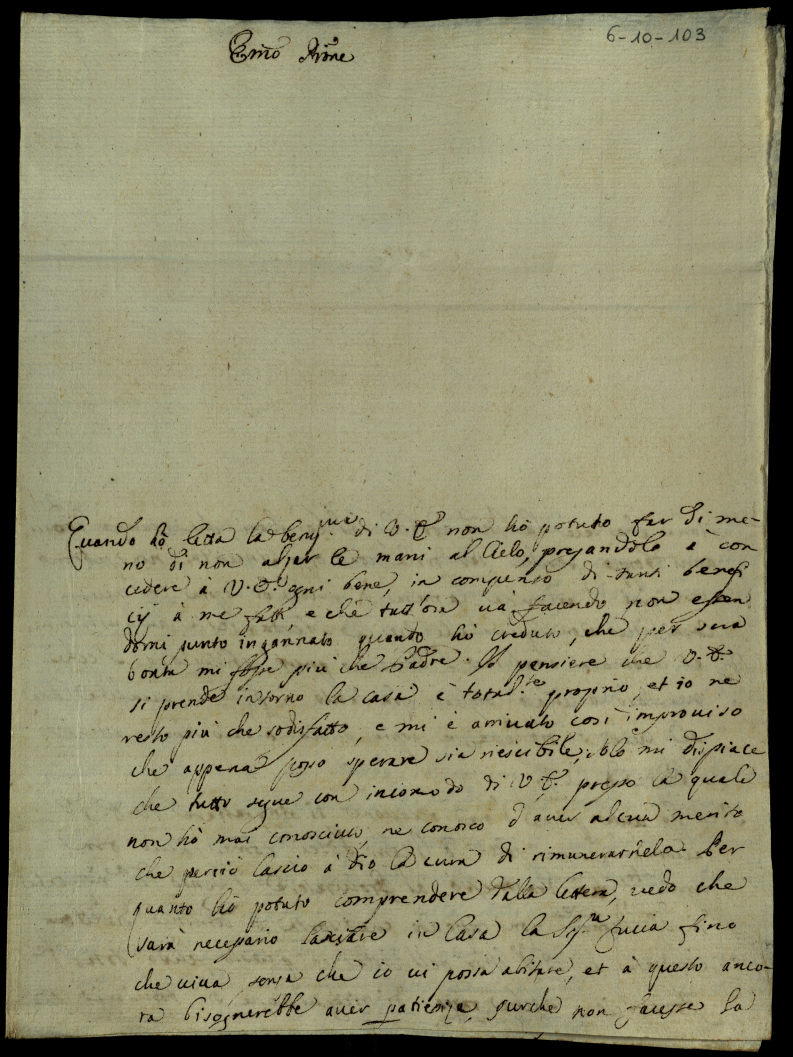 6-10-103
Em̃o Prõne
Quando hò letta la benig.ma di V. E. non hò potuto far di me-
no di non alzar le mani al Cielo, pregandolo à con
cedere à V. E. ogni bene, in compenso di tanti benefi
cij à me fatti, e che tutt'ora và facendo non essen
domi punto ingannato quando hò creduto, che per sua
bontà mi fosse più che Padre. Il pensiere che V. E.
si prende intorno la casa è total.te proprio, et io ne
resto più che sodisfatto, e mi è arrivato così improviso
che appena posso sperare sia riescibile, solo mi dispiace
che tutto segue con incomodo di V. E. presso la quale
non hò mai conosciuto, ne conosco d'aver alcun merito
che perciò lascio à Dio la cura di rimunerarnela. Per
quanto hò potuto comprendere dalla lettera, vedo che
sarà necessario lasciare in Casa la Sig.ra Lucia fino
che viva, senza che io vi possa abitare, et à questo anco-
ra bisognerebbe aver patienza, purche non facesse la